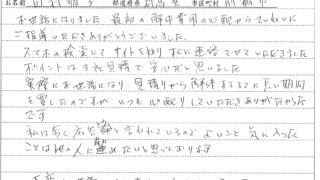 お名前
都道府県
市区町村
お世話になりました 最初の解体費用の心配からていねいに
ご指導いただきありがとうございました。
スマホの検索にてサイトを知りすぐに連絡させていただきました
ポイントは3社見積で安心だと思いました
実際にお世話になり、見積りから解体するまでに長い期間
を要したのですがいつも心配りしていただきありがたかった
です
私は歩く広告と言われているのでよいこと気に入った
ことは他の人に薦めたいと思っております